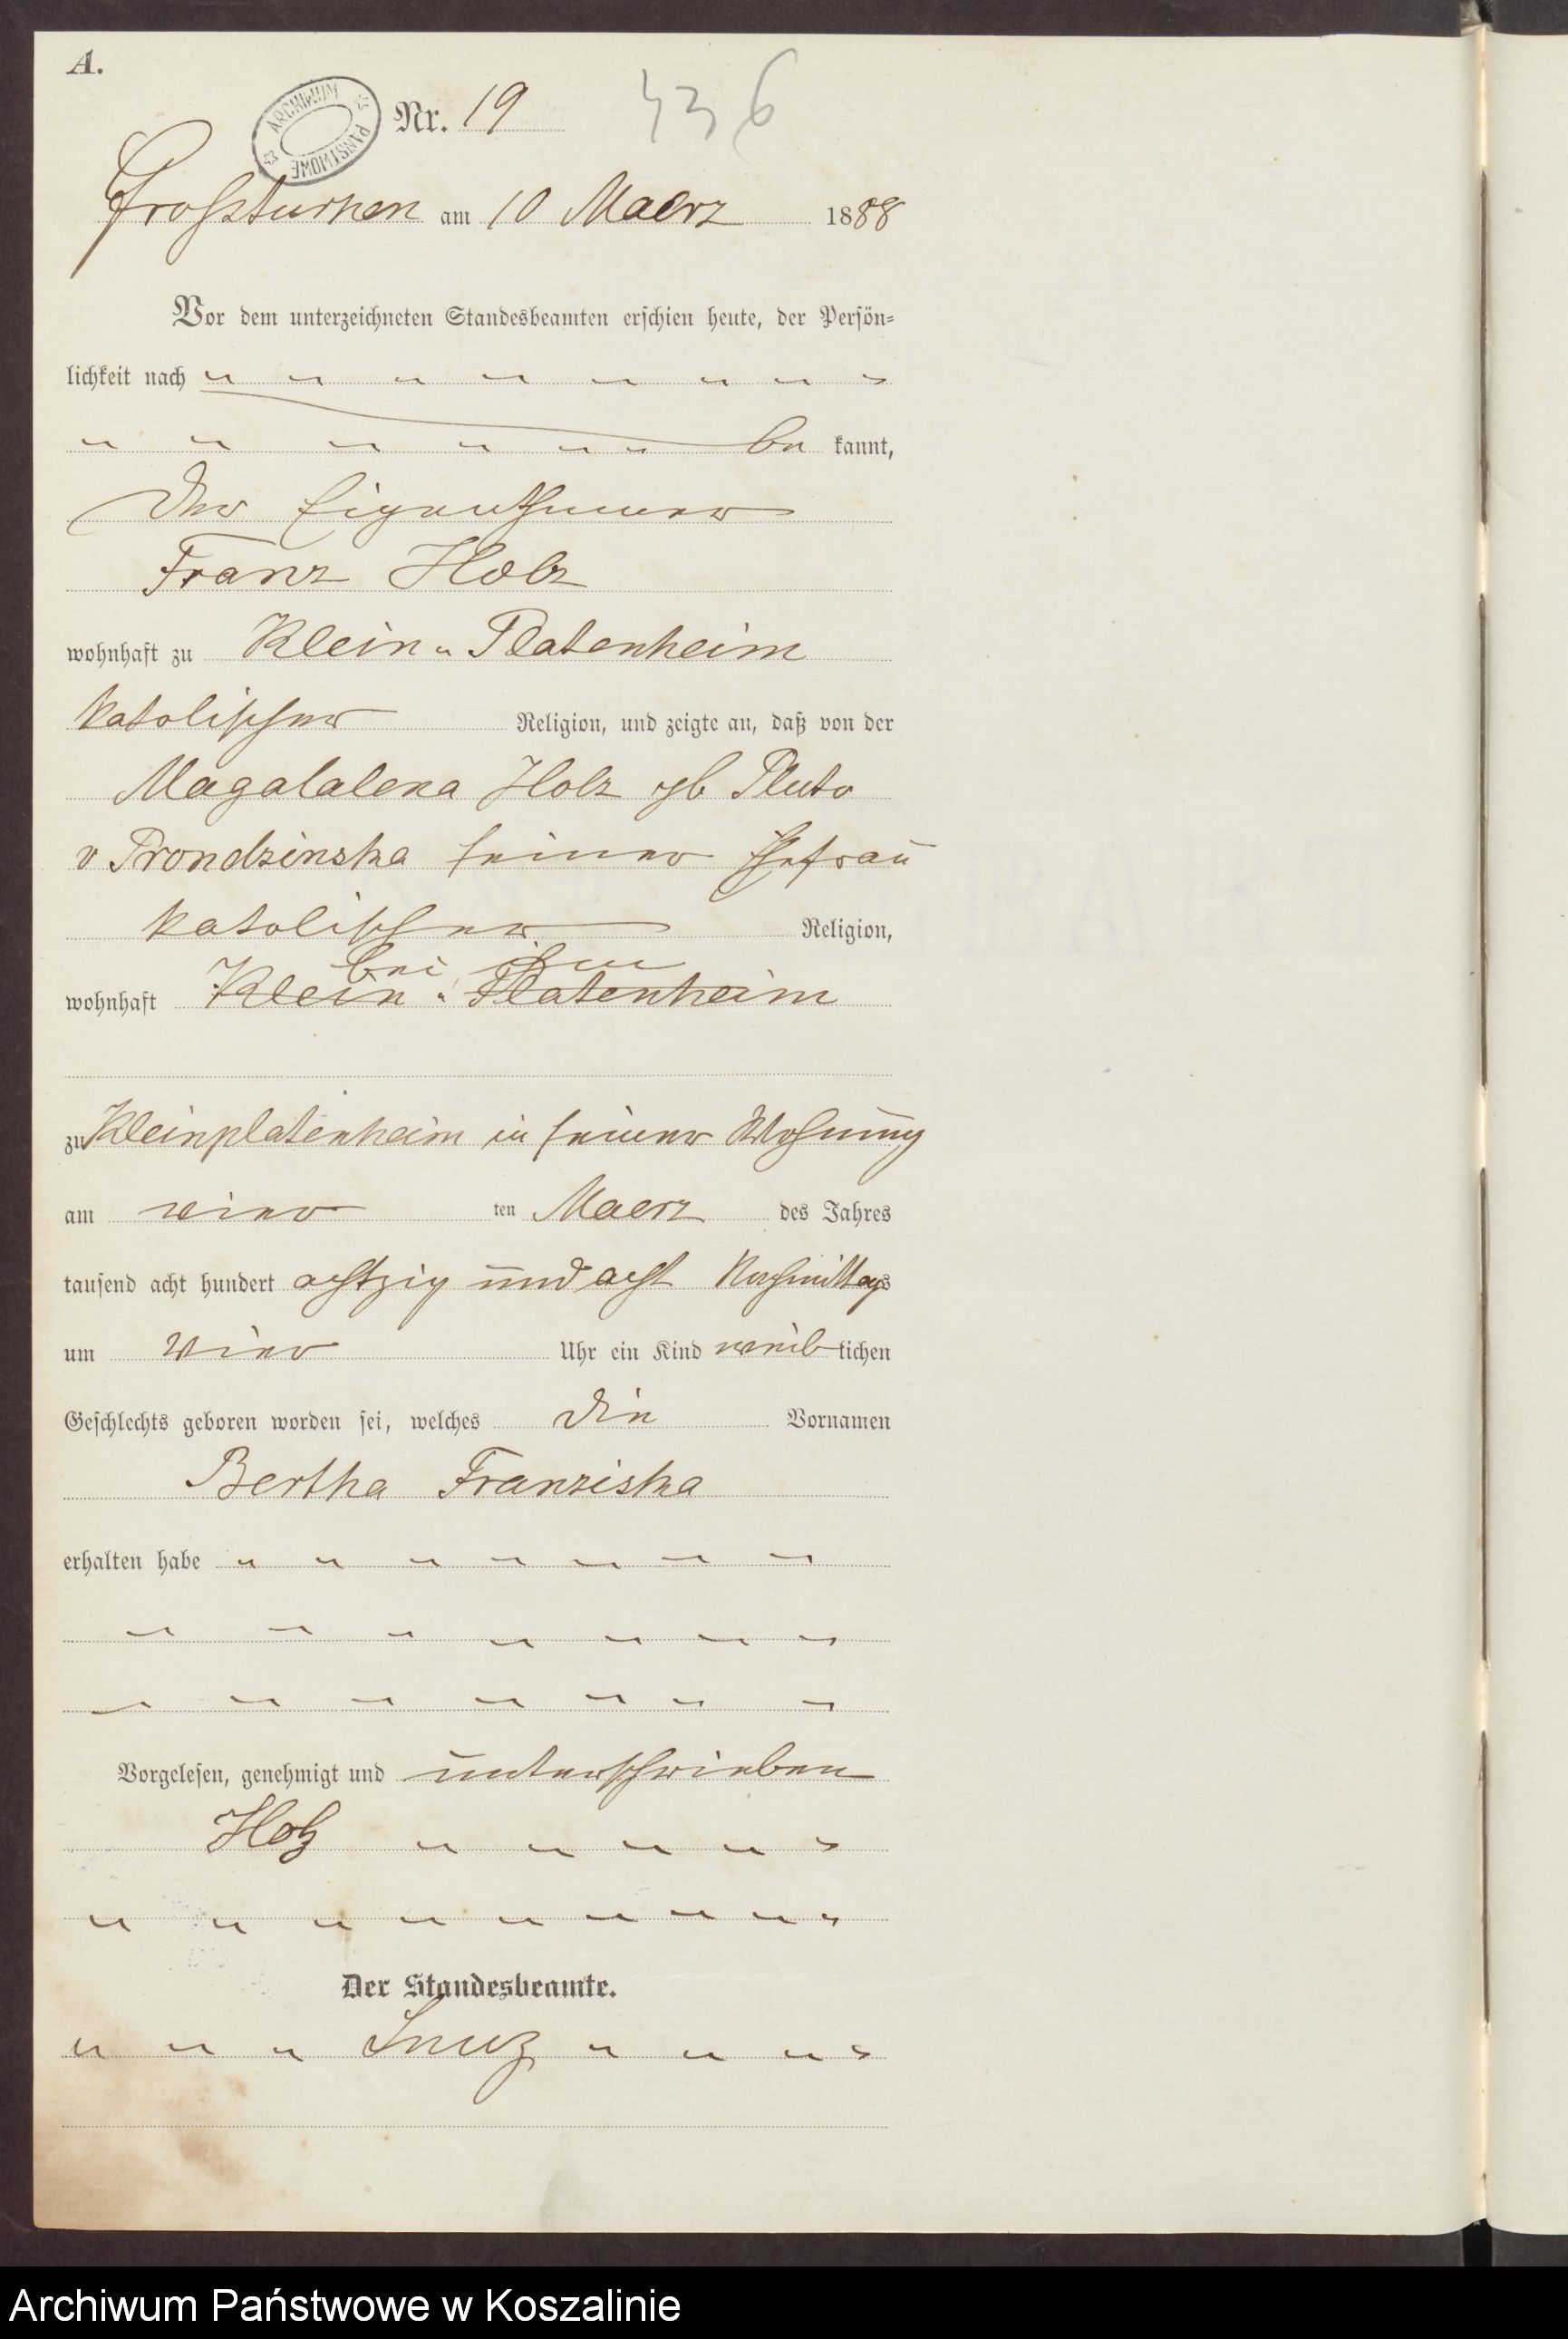 A.
ARCHIWUM PAŃSTWOWE
Nr. 19 436
Großtuchen am 10 Maerz 1888
Vor dem unterzeichneten Standesbeamten erschien heute, der Persön-
lichkeit nach
be kannt,
der Eigenthümer
Franz Holz
wohnhaft zu Klein-Platenheim
katolischer Religion, und zeigte an, daß von der
Magalalena Holz gb Pluto
v Prondzinska seiner Ehefrau
katolischer Religion,
bei ihm
wohnhaft Klein-Platenheim
zu Kleinplatenheim in seiner Wohnung
am vier ten Maerz des Jahres
tausend acht hundert achtzig und acht Nachmittags
um vier Uhr ein Kind weib lichen
Geschlechts geboren worden sei, welches die Vornamen
Bertha Franziska
erhalten habe
Vorgelesen, genehmigt und unterschrieben
Holz
Der Standesbeamte.
Archiwum Państwowe w Koszalinie